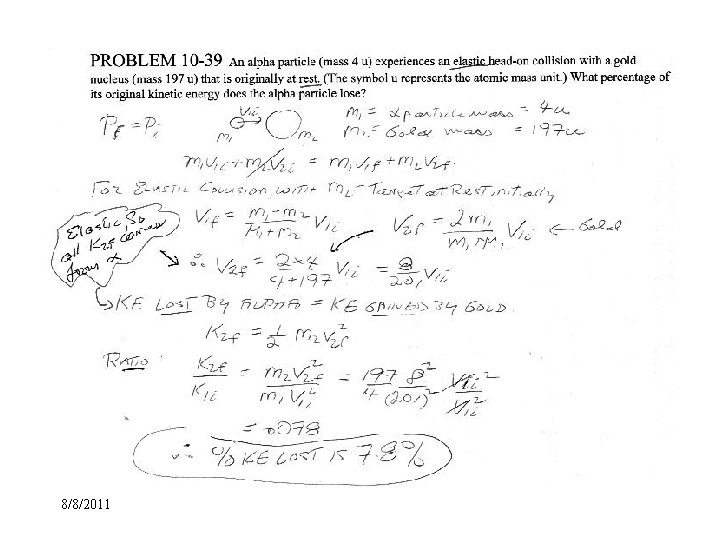 PROBLEM 10-39 An alpha particle (mass 4 u) experiences an elastic head-on collision with a gold
nucleus (mass 197 u) that is originally at rest. (The symbol u represents the atomic mass unit.) What percentage of
its original kinetic energy does the alpha particle lose?
V1i m1 = α particle mass = 4u
Pf = Pi m1 m2 m1 = Gold mass = 197u
m1V1i + m2V2i = m1V1f + m2V2f
For Elastic Collision with m2 = Target at Rest, initially
V1f = m1-m2 / m1+m2 V1i V2f = 2m1 / m1+m1 V1i ← Gold
Elastic So
all K2f comes
from α
∴ V2f = 2×4 / 4+197 V1i = 8 / 201 V1i
KE LOST BY ALPHA = KE GAINED BY GOLD
K2f = 1/2 m2 V2f²
RATIO: K2f / K1i = m2V2f² / m1V1i² = 197 / 4 8² / (201)² V1i² / V1i²
= .078
∴ % KE LOST IS 7.8%
8/8/2011